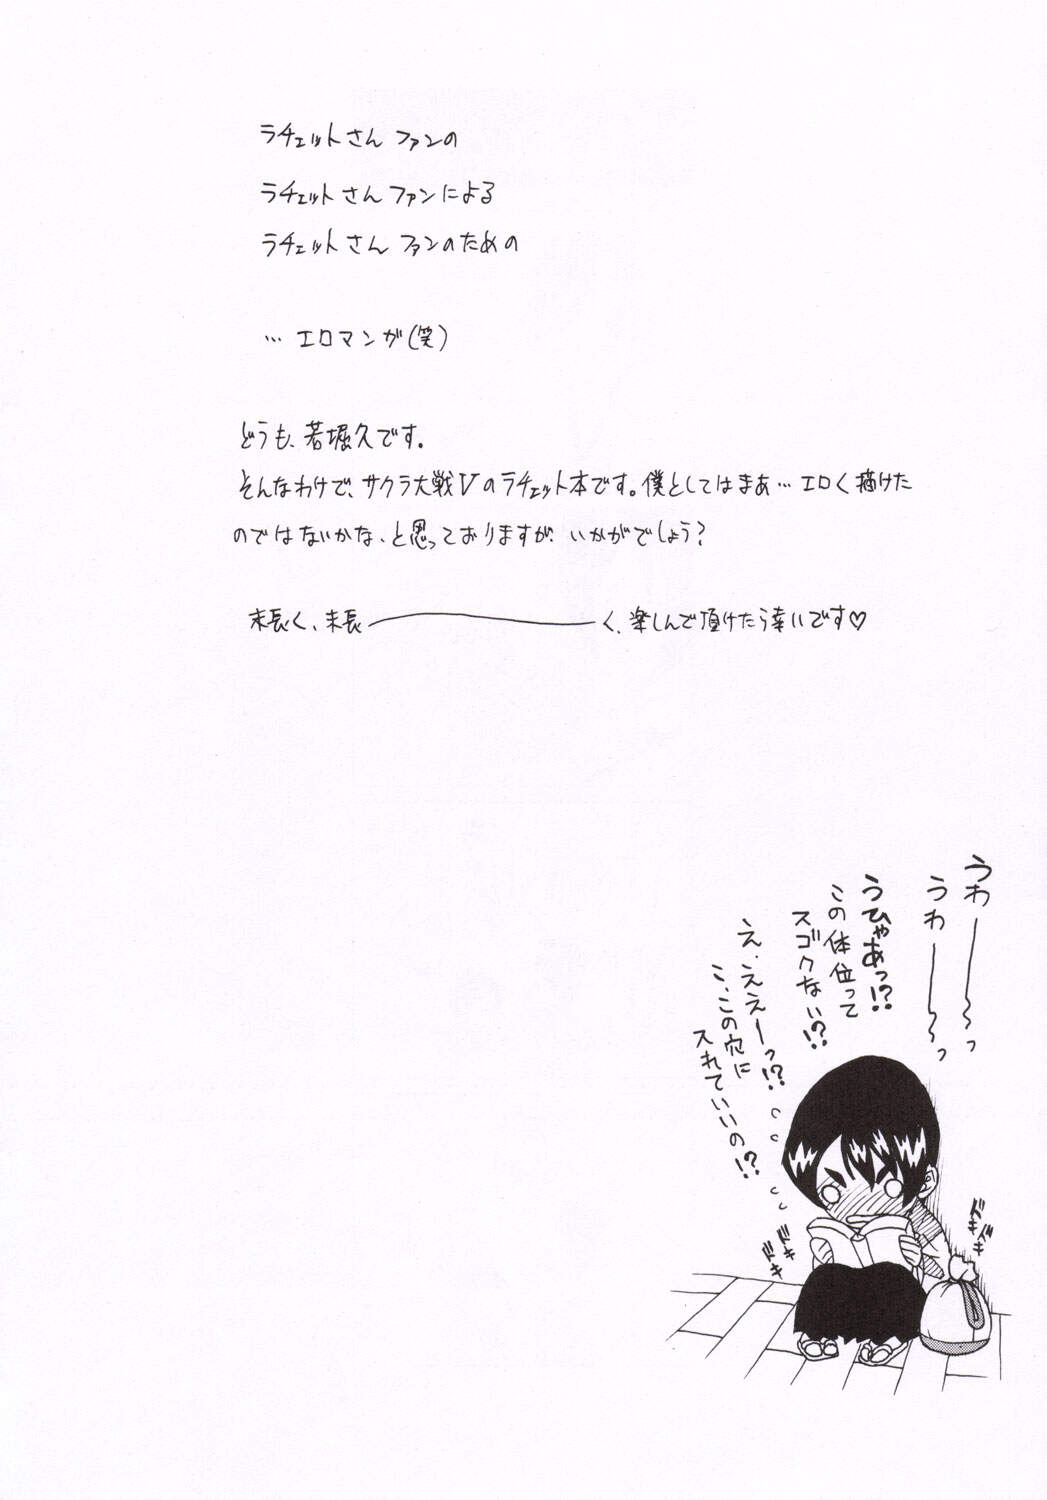 ラチェットさん ファンの
ラチェットさん ファンによる
ラチェットさん ファンのための
… エロマンガ(笑)
どうも、若堀久です。
そんなわけで、サクラ大戦Vのラチェット本です。僕としてはまぁ… エロく描けた
のではないかな、と思っておりますが、いかがでしょう?
末長く、末長――――く、楽しんで頂けたら幸いです♡
うわ――〜っ
うわ――〜っ
うひゃあっ!?
この体位って
スゴクない!?
え、ええーっ!?
こ、この穴に
入れていいの!?
ドキ
ドキ
ドキ
ドキ